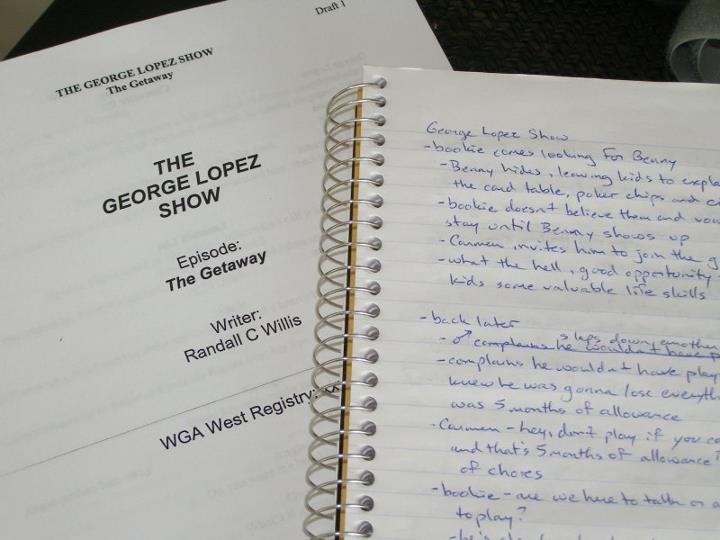 Draft 1
THE GEORGE LOPEZ SHOW
The Getaway
THE
GEORGE LOPEZ
SHOW
Episode:
The Getaway
Writer:
Randall C Willis
WGA West Registry:
George Lopez Show
- bookie comes looking for Benny
- Benny hides, leaving kids to
the card table, poker chips and
- bookie doesn't believe them and
stay until Benny shows up
- Carmen invites him to join the
- what the hell, good opportunity
kids some valuable life skills
- back later
- ♂ complains he wouldn't have
slaps down another
- complains he wouldn't have
knew he was gonna lose
was 5 months of allowance
- Carmen - hey, don't play if you
and that's 5 months of allowance
of chores
- bookie - are we here to talk or
to play?